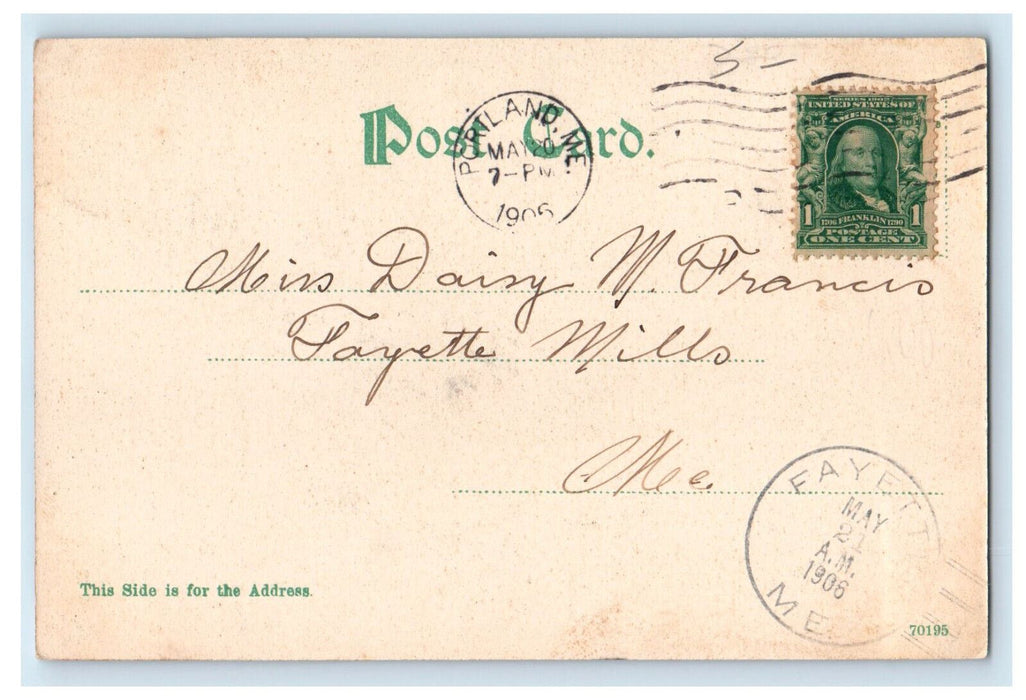 Post Card.
PORTLAND, ME.
MAY 20
7-PM
1906
SERIES 1902
UNITED STATES OF
AMERICA
1 1706 FRANKLIN 1790 1
POSTAGE
ONE CENT
Miss Daisy M. Francis
Fayette Mills
Me.
FAYETT
MAY
21
A.M.
1906
ME.
This Side is for the Address.
70195